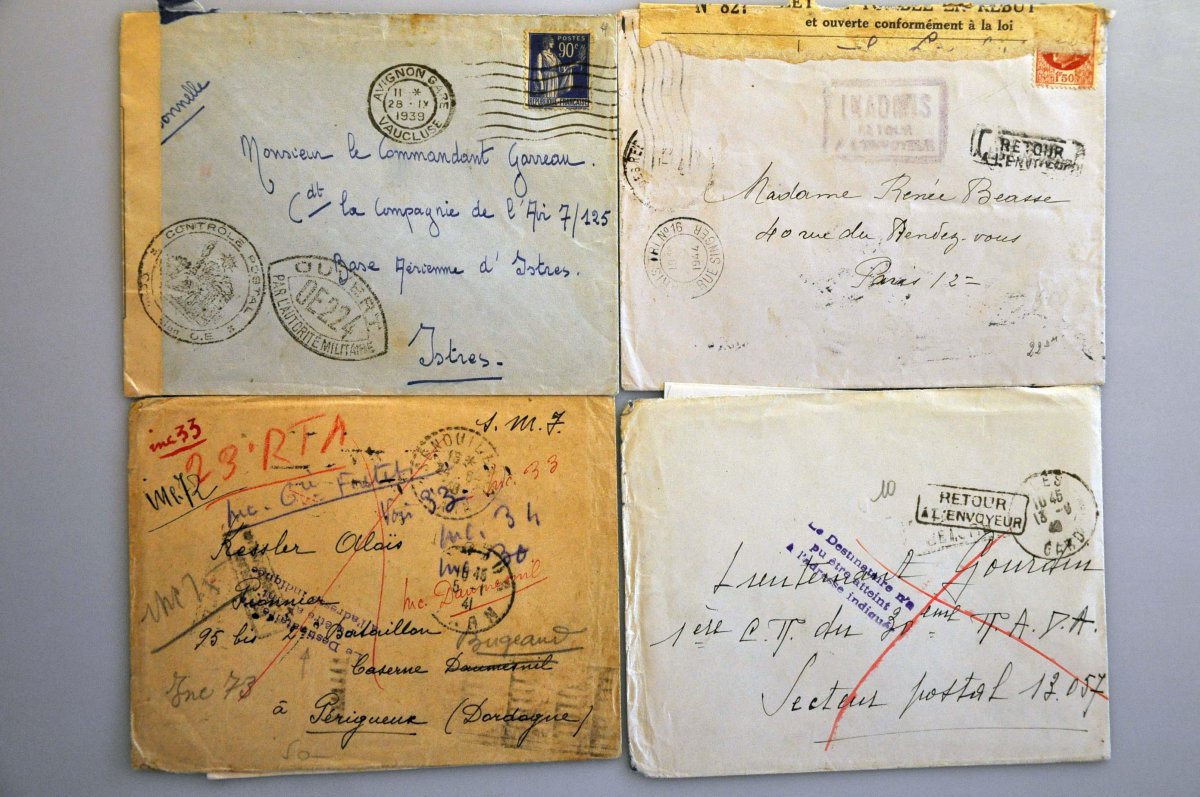 onnelle
AVIGNON GARE
11 *
28 - IX
1939
VAUCLUSE
POSTES
90c
REPUBLIQUE FRANÇAISE
Monsieur le Commandant Garreau.
Cdt la Compagnie de l'Air 7/125
Base Aérienne d'Istres.
Istres.
CONTRÔLE POSTAL
OUVERT
PAR L'AUTORITÉ MILITAIRE
DE224
N° 827
EN REBUT
et ouverte conformément à la loi
1F50
INADMIS
RETOUR
A L'ENVOYEUR
RETOUR
A L'ENVOYEUR
1944
RUE SINGER
Madame Renée Beasse
40 rue du Rendez-vous
Paris 12
inc 33
23e RTA
S.M.J.
inc 72
inc. 33
Inc 34
Kessler Aloïs
Inc. Daumesnil
inc 75
Pionnier
Le Destinataire n'a
pu être atteint
à l'adresse indiquée
95 bis 2e Bataillon
Bugeaud
Caserne Daumesnil
Inc 73
à Périgueux (Dordogne)
41
10
RETOUR
À L'ENVOYEUR
10 45
GARD
Le Destinataire n'a
pu être atteint
à l'adresse indiquée
Lieutenant Gourdin
1ère C.T. du 20ème
Secteur postal 13.057